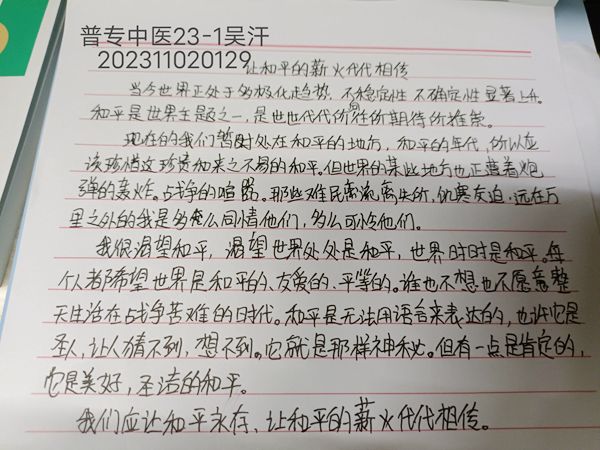 普专中医23-1吴汗
202311020129
让和平的薪火代代相传
当今世界正处于多极化趋势，不稳定性不确定性显著上升。
和平是世界主题之一，是世世代代所向往所期待所推崇。
现在的我们暂时处在和平的地方，和平的年代，所以应
该珍惜这珍贵和来之不易的和平。但世界的某些地方也正遭着炮
弹的轰炸。战争的喧嚣。那些难民离流离失所，饥寒交迫。远在万
里之外的我是多么同情他们，多么可怜他们。
我很渴望和平，渴望世界处处是和平，世界时时是和平。每
个人都希望世界是和平的、友爱的、平等的。谁也不想也不愿意整
天生活在战争苦难的时代。和平是无法用语言来表达的，也许它是
圣人，让人猜不到，想不到。它就是那样神秘。但有一点是肯定的，
它是美好，圣洁的和平。
我们应让和平永存，让和平的薪火代代相传。